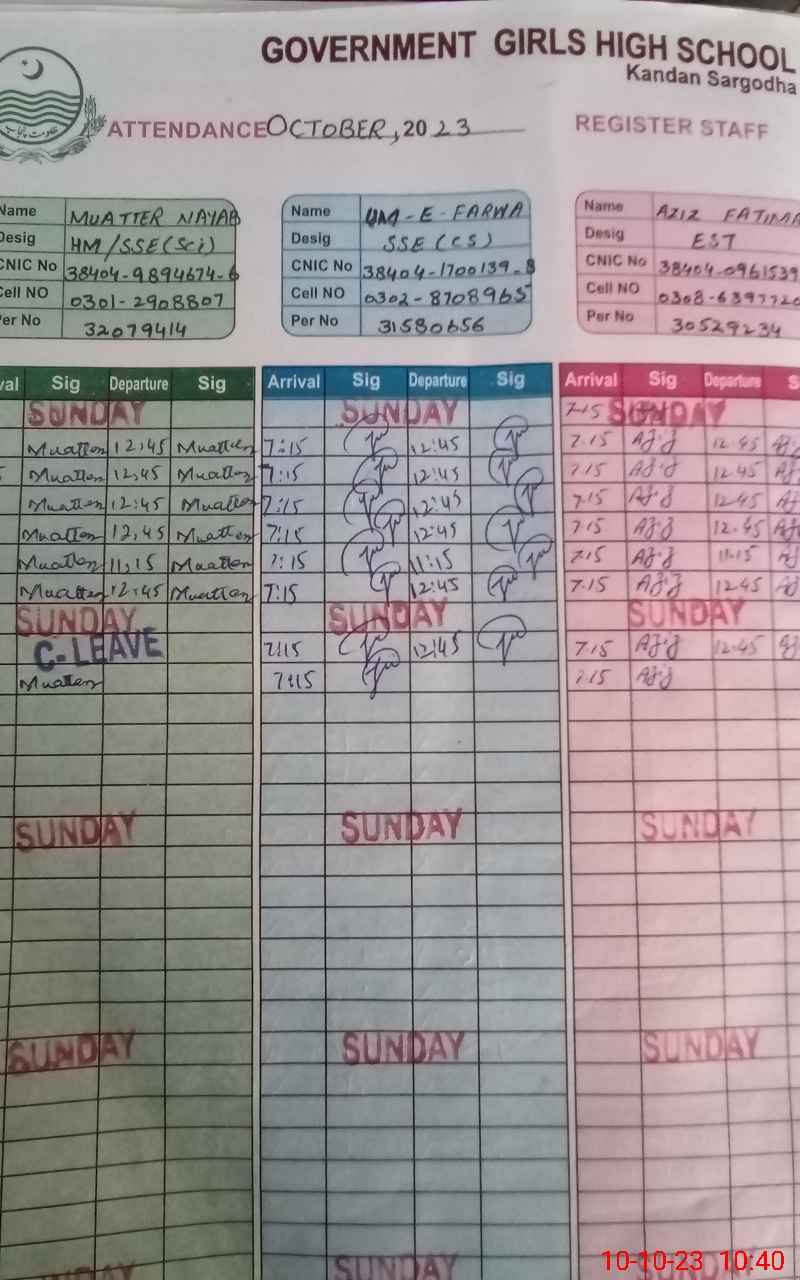 GOVERNMENT GIRLS HIGH SCHOOL
Kandan Sargodha
ATTENDANCE OCTOBER, 2023 REGISTER STAFF
Name MUATTER NAYAB
Desig HM/SSE(Sci)
CNIC No 38404-9894674-6
Cell NO 0301-2908807
Per No 32079414
Name UM-E-FARWA
Desig SSE (CS)
CNIC No 38404-1700139-8
Cell NO 0302-8708965
Per No 31580656
Name AZIZ FATIMA
Desig EST
CNIC No 38404-0961539
Cell NO 0308-6397720
Per No 30529234
val Sig Departure Sig Arrival Sig Departure Sig Arrival Sig Departure S
SUNDAY SUNDAY 7.15 SUNDAY
Muatter 12:45 Muatter 7:15 12:45 7.15 12.45
Muatter 12,45 Muatter 7:15 12:45 7.15 12.45
Muatter 12:45 Muatter 7:15 12:45 7.15 12.45
Muatter 12,45 Muatter 7:15 12:45 7.15 12.45
Muatter 11,15 Muatter 7:15 11:15 7.15 11.15
Muatter 12:45 Muatter 7:15 12:45 7.15 12.45
SUNDAY SUNDAY SUNDAY
C-LEAVE 7:15 12:45 7.15 12.45
Muatter 7:15 7.15
SUNDAY SUNDAY SUNDAY
SUNDAY SUNDAY SUNDAY
SUNDAY SUNDAY SUNDAY
10-10-23 10:40